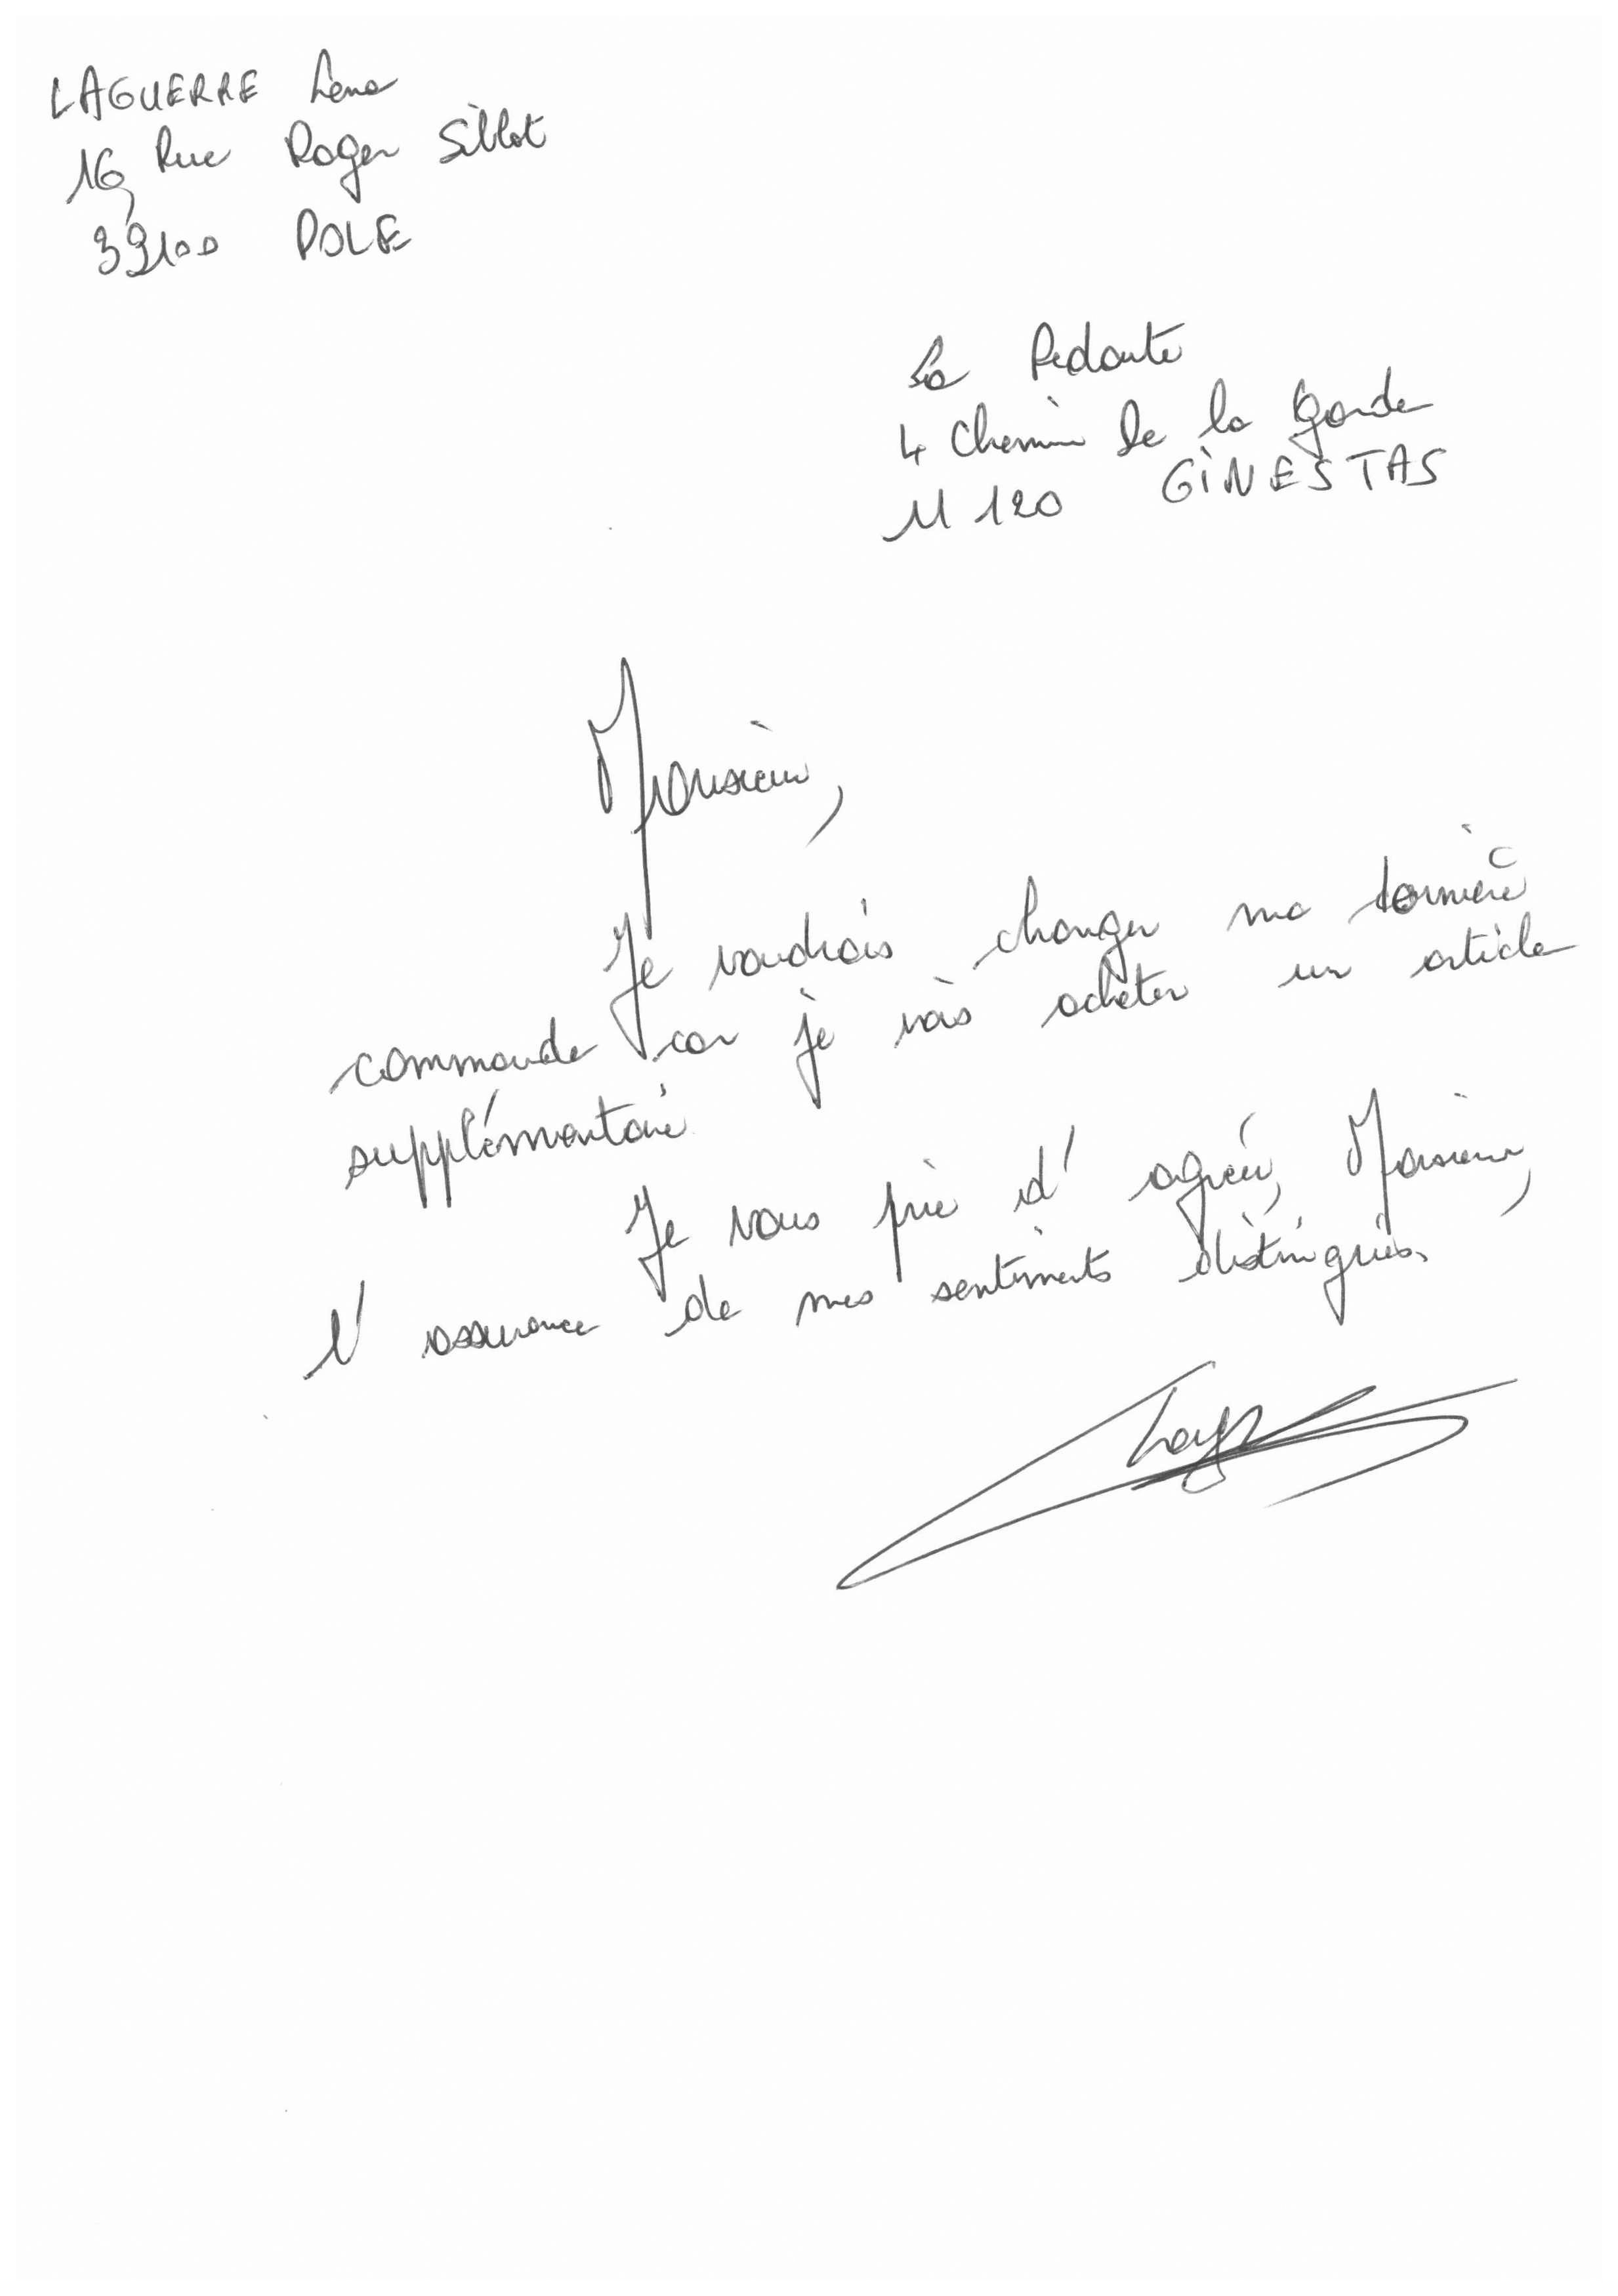 LAGUERRE Lena
16, Rue Roger Sillot
39100 DOLE
La Redoute
4 Chemin de la Garde
11 120 GINESTAS
Monsieur,
Je voudrais changer ma dernière
commande car je vais acheter un article
supplémentaire.
Je vous prie d'agréer, Monsieur,
l'assurance de mes sentiments distingués.